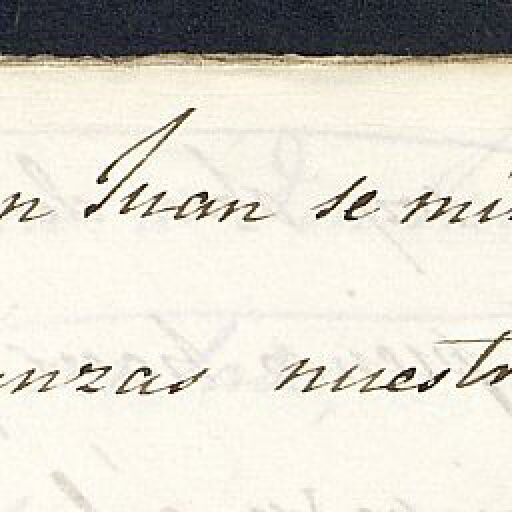 n Juan se mi
nzas nuestr